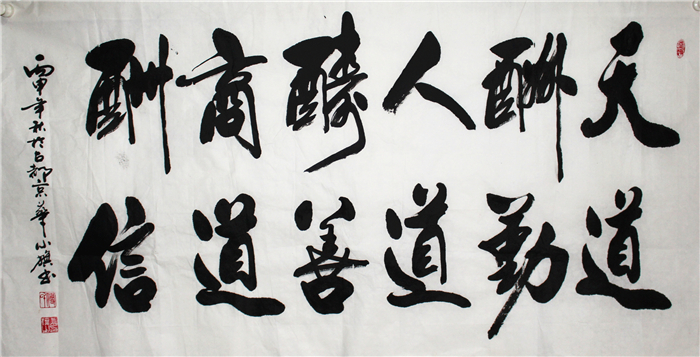 天道
酬勤
人道
醻善
商道
酬信
丙申年秋於古都京華小书